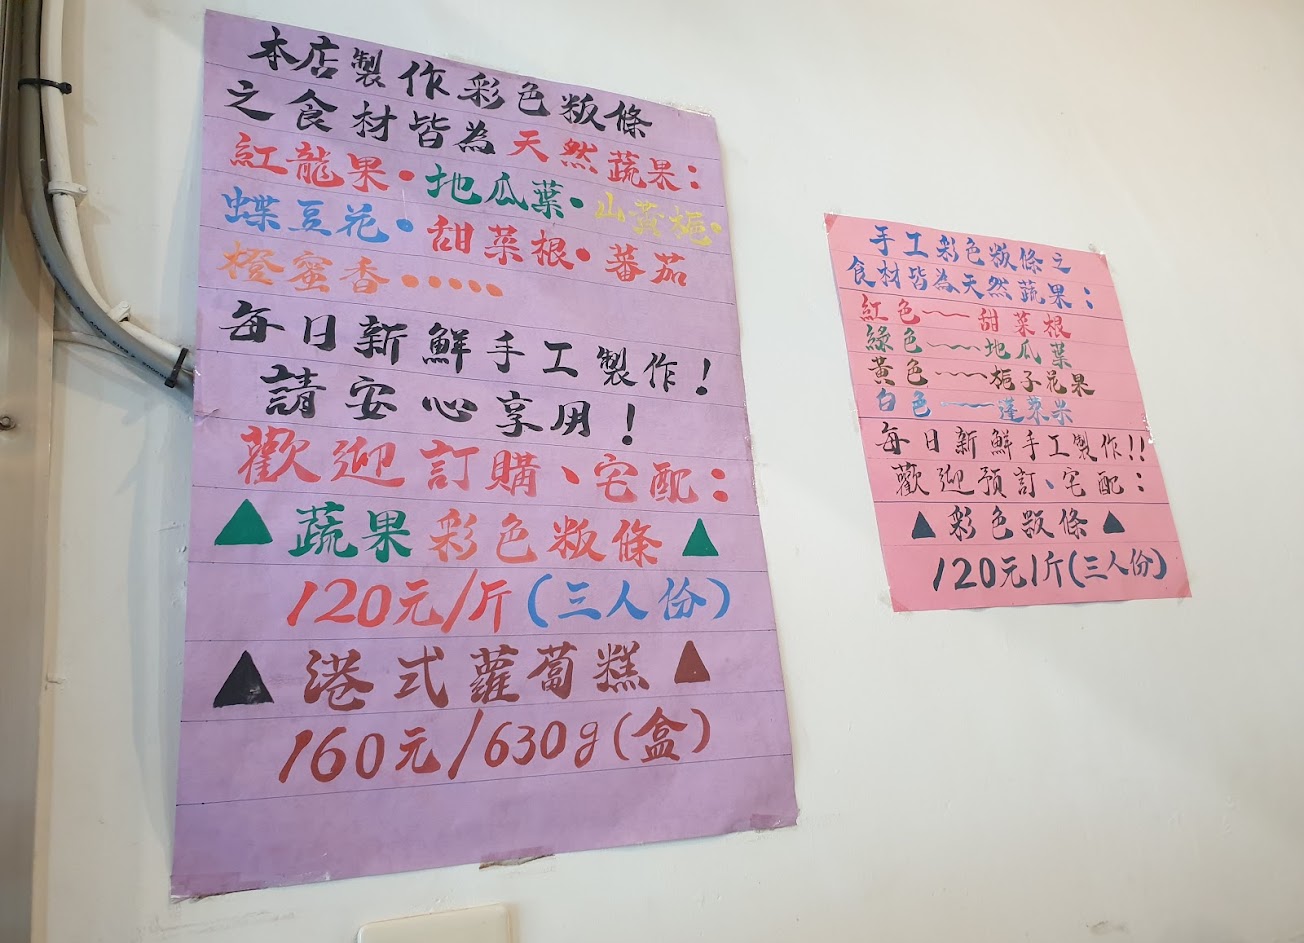 本店製作彩色粄條
之食材皆為天然蔬果:
紅龍果·地瓜葉·山黃梔·
蝶豆花·甜菜根·蕃茄
橙蜜香·····
每日新鮮手工製作!
請安心享用!
歡迎訂購、宅配:
▲蔬果彩色粄條▲
120元/斤(三人份)
▲港式蘿蔔糕▲
160元/630g(盒)
手工彩色粄條之
食材皆為天然蔬果:
紅色~~甜菜根
綠色~~地瓜葉
黃色~~梔子花果
白色~~蓬萊米
每日新鮮手工製作!!
歡迎預訂、宅配:
▲彩色粄條▲
120元/斤(三人份)